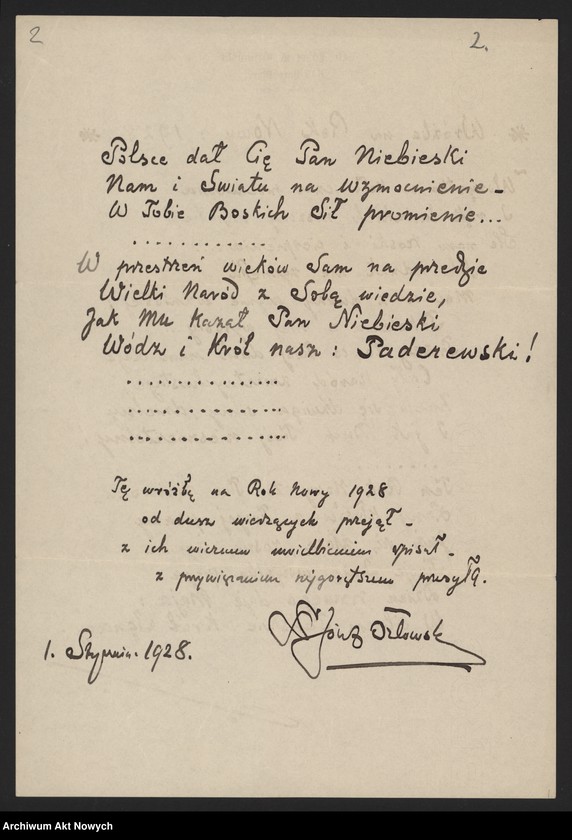 2
2.
Polsce dał Cię Pan Niebieski
Nam i Światu na Wzmocnienie –
W Tobie Boskich Sił promienie...
.............
W przestrzeń wieków Sam na przedzie
Wielki Naród z Sobą wiedzie,
Jak Mu Kazał Pan Niebieski
Wódz i Król nasz: Paderewski!
...............
...............
...............
Tę wróżbę na Rok Nowy 1928
od dusz wiedzących przejął –
z ich wiernem uwielbieniem spisał –
z przywiązaniem najgorętszem przesyła.
Józef Orłowski
1. Stycznia. 1928.
Archiwum Akt Nowych